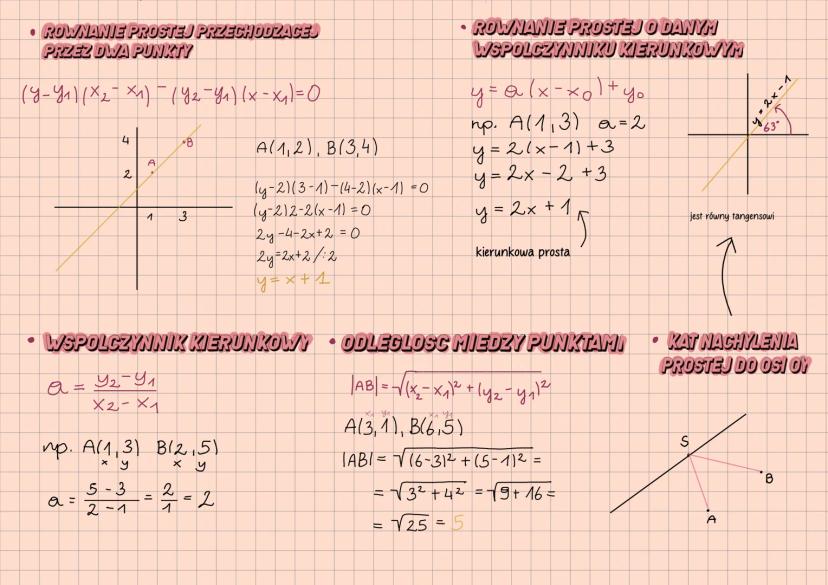 • ROWNANIE PROSTEJ PRZECHODZACEJ
PRZEZ DWA PUNKTY
(y-y₁)(x₂-x₁)-(y₂-y₁)(x-x₁)=0
4
2
A
B
1 3
A(1,2), B(3,4)
(y-2)(3-1)-(4-2)(x-1) = 0
(y-2)2-2(x-1) = 0
2y-4-2x+2 = 0
2y=2x+2 /:2
y = x + 1
• ROWNANIE PROSTEJ O DANYM
WSPOLCZYNNIKU KIERUNKOWYM
y = a (x-x₀)+y₀
np. A(1,3) a=2
y = 2(x-1)+3
y = 2x - 2 +3
y = 2x + 1
kierunkowa prosta
y=2x-1
63°
jest równy tangensowi
• WSPOLCZYNNIK KIERUNKOWY
a = y₂-y₁
x₂-x₁
np. A(1,3) B(2,5)
x y x y
a = 5-3 = 2 = 2
2-1 1
• ODLEGLOSC MIEDZY PUNKTAMI
|AB|=√(x₂-x₁)²+(y₂-y₁)²
x₁ y₁ x₂ y₁
A(3,1), B(6,5)
|AB| = √(6-3)²+(5-1)² =
= √3²+4² = √9+16 =
= √25 = 5
• KAT NACHYLENIA
PROSTEJ DO OSI OY
S
B
A